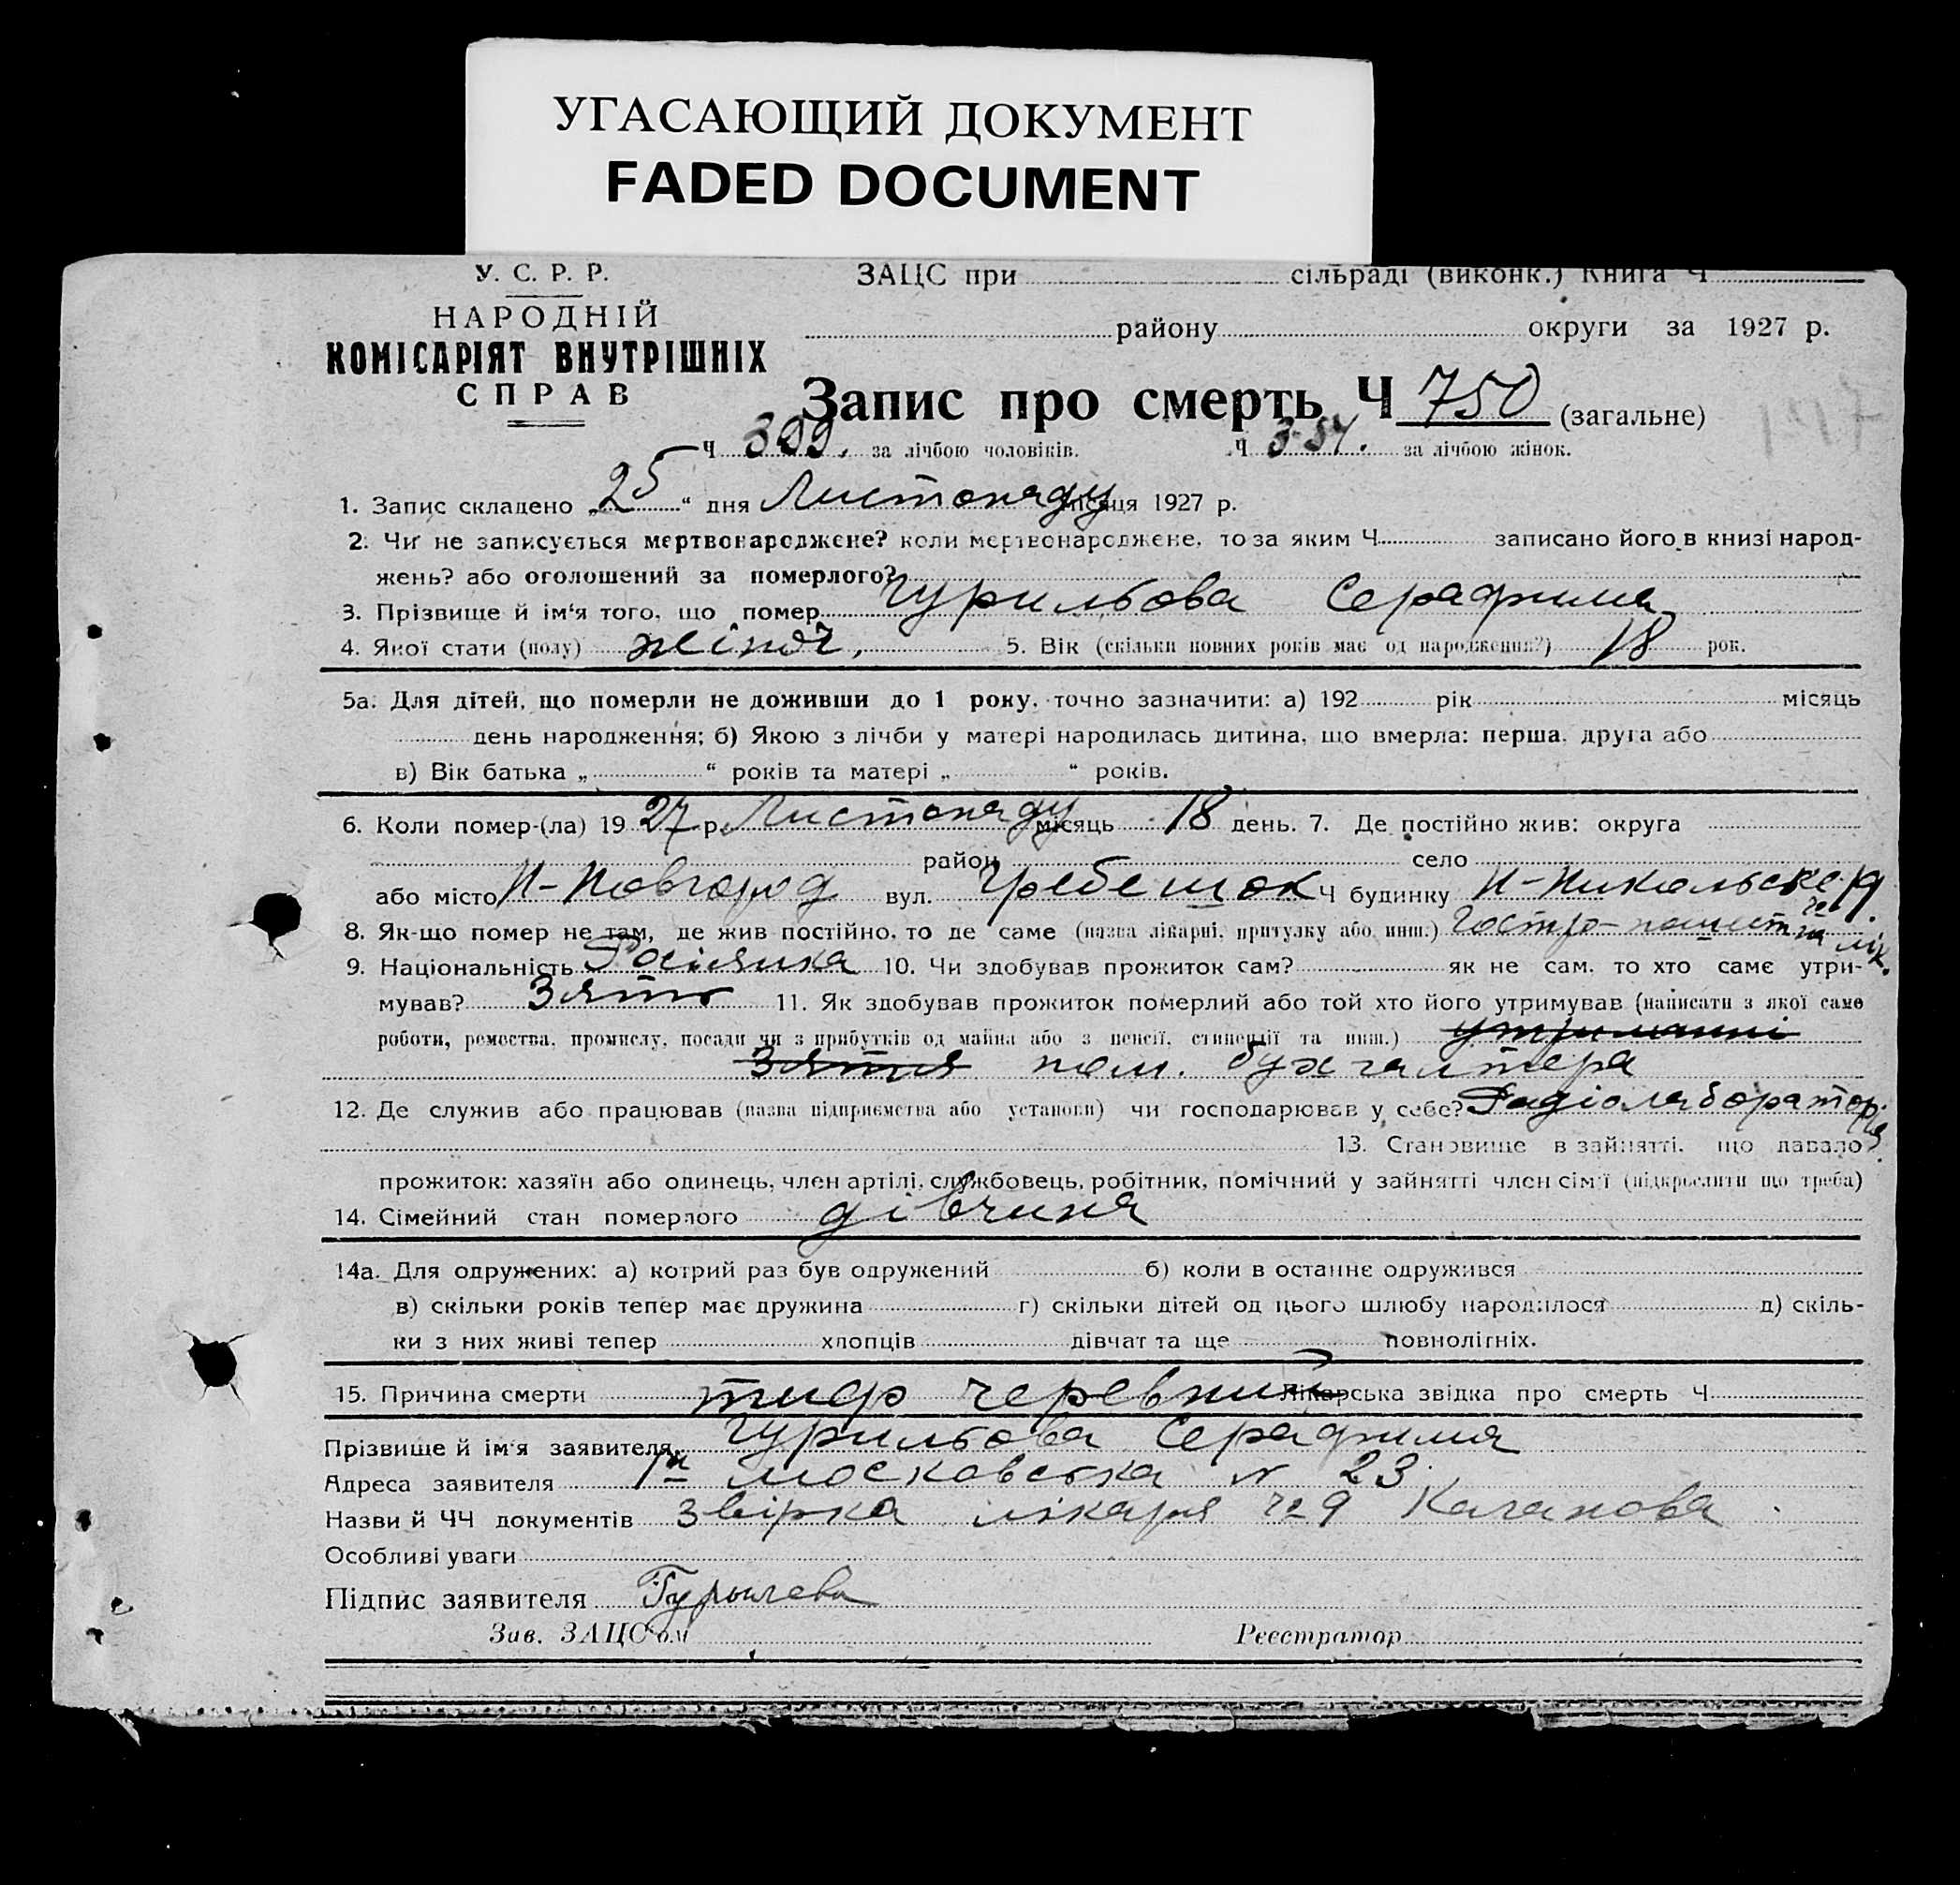 УГАСАЮЩИЙ ДОКУМЕНТ
FADED DOCUMENT
У. С. Р. Р.
НАРОДНІЙ
КОМІСАРІЯТ ВНУТРІШНІХ
СПРАВ
ЗАЦС при сільраді (виконк.) Книга Ч
району округи за 1927 р.
Запис про смерть Ч 750 (загальне)
Ч за лічбою чоловіків. Ч за лічбою жінок.
1. Запис складено „25“ дня Листопаду місяця 1927 р.
2. Чи не записується мертвонароджене? коли мертвонароджене, то за яким Ч. записано його в книзі народ-
жень? або оголошений за померлого?
3. Прізвище й ім‘я того, що помер Гурильова Серафима
4. Якої стати (полу) жіноч, 5. Вік (скільки повних років має од народження?) 18 рок.
5а. Для дітей, що померли не доживши до 1 року, точно зазначити: а) 192 рік місяць
день народження; б) Якою з лічби у матері народилась дитина, що вмерла: перша, друга або
в) Вік батька „ “ років та матері „ “ років.
6. Коли помер-(ла) 1927 р. Листопаду місяць 18 день. 7. Де постійно жив: округа
район село
або місто Н-Новгород вул. Гребешок Ч будинку
8. Як-що помер не там, де жив постійно, то де саме (назва лікарні, притулку або инш.)
9. Національність Росіянка 10. Чи здобував прожиток сам? як не сам, то хто саме утри-
мував? Зять 11. Як здобував прожиток померлий або той хто його утримував (написати з якої саме
роботи, ремества, промислу, посади чи з прибутків од майна або з пенсії, стипендії та инш.) утриманні
Зятя пом. бухгалтера
12. Де служив або працював (назва підприємства або установи) чи господарював у себе? Радіолабораторія
13. Становище в зайнятті, що давало
прожиток: хазяїн або одинець, член артілі, службовець, робітник, помічний у зайнятті член сім‘ї (підкреслити що треба)
14. Сімейний стан померлого дівчина
14а. Для одружених: а) котрий раз був одружений б) коли в останнє одружився
в) скільки років тепер має дружина г) скільки дітей од цього шлюбу народилося д) скіль-
ки з них живі тепер хлопців дівчат та ще повнолітніх.
15. Причина смерти тиф черевний Лікарська звідка про смерть Ч
Прізвище й ім‘я заявителя Гурильова Серафима
Адреса заявителя 1ша Московська № 23
Назви й ЧЧ документів лікаря ч 29 Качанова
Особливі уваги
Підпис заявителя Гурылева
Зав. ЗАЦС‘ом Реєстратор